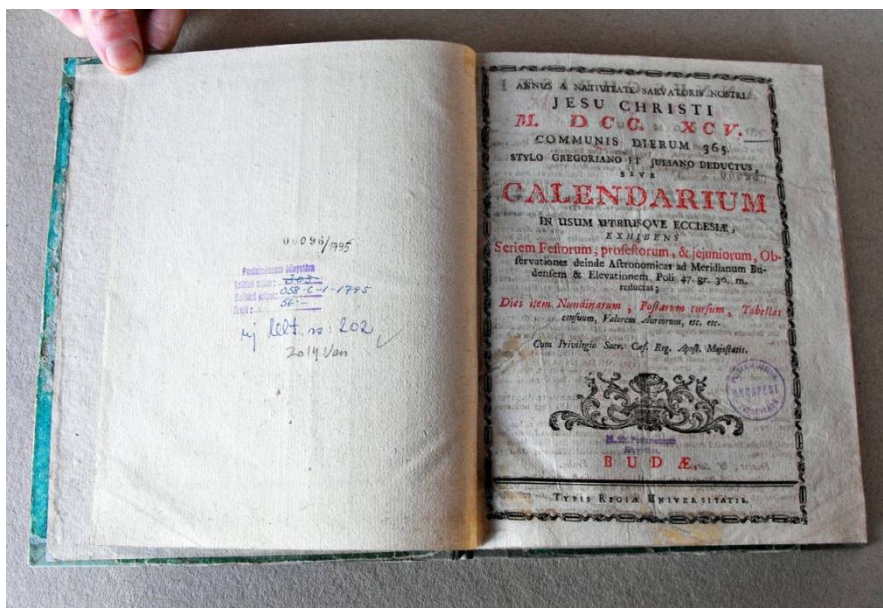 00096/1795
Postamúzeum könyvtára
058-C-1-1795
56.-
új lelt. sz: 202
2014 Van
ANNUS A NATIVITATE SALVATORIS NOSTRI
JESU CHRISTI
M. D C C. X C V.
COMMUNIS DIERUM 365.
STYLO GREGORIANO ET JULIANO DEDUCTUS,
SIVE
CALENDARIUM
IN USUM UTRIUSQVE ECCLESIÆ,
EXHIBENS
Seriem Festorum, profestorum, & jejuniorum, Ob-
servationes deinde Astronomicas ad Meridianum Bu-
densem & Elevationem Poli 47. gr. 30. m.
reductas;
Dies item Nundinarum, Postarum cursum, Tabellas
censuum, Valorem Aureorum, etc. etc.
Cum Privilegio Sacr. Cæs. Reg. Apost. Majestatis.
BUDAPEST
BUDÆ,
TYPIS REGIÆ UNIVERSITATIS.